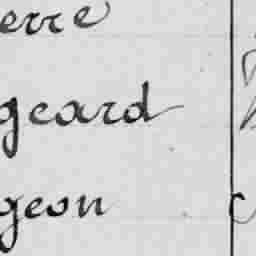 erre
geard
geon